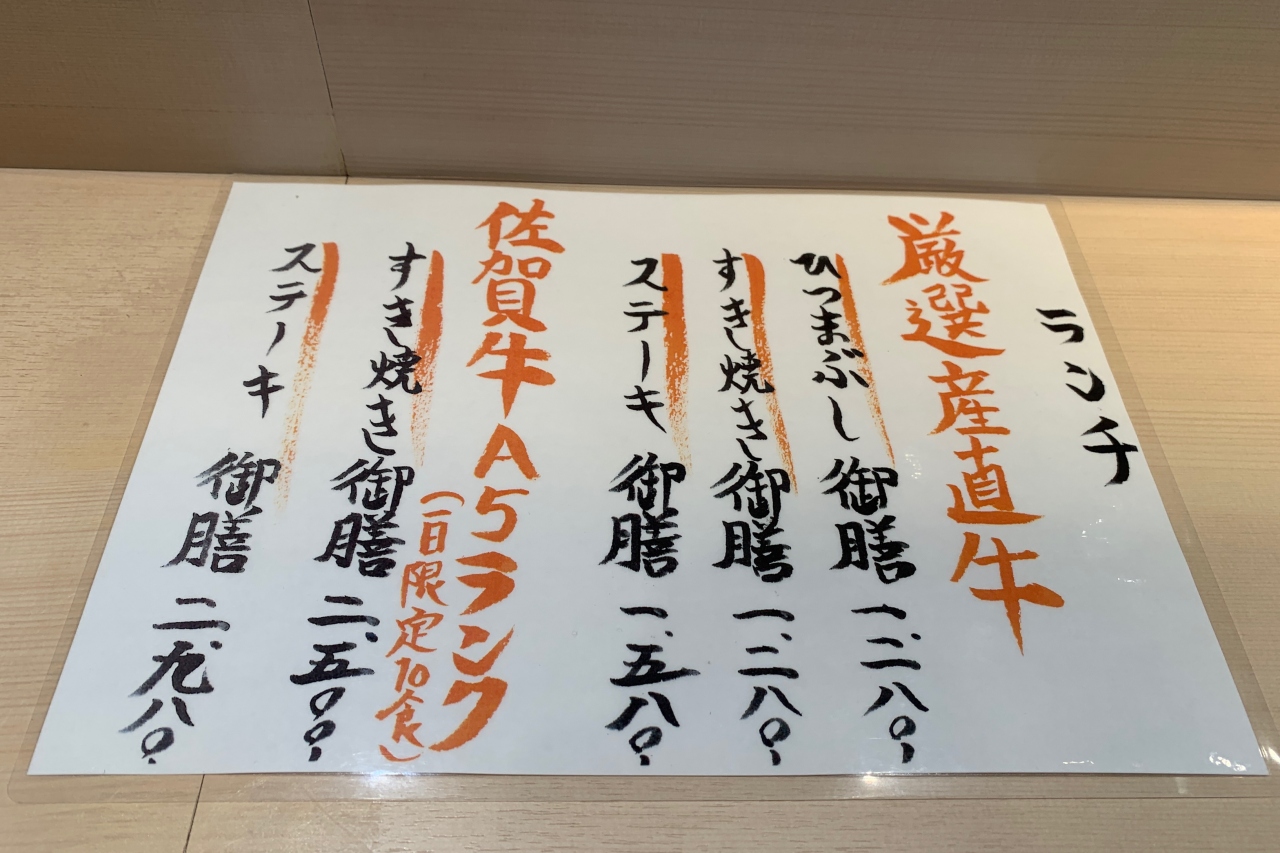 ランチ
厳選産直牛
ひつまぶし御膳 一、二八〇、
すきし焼きし御膳 一、二八〇、
ステーキ御膳 一、五八〇、
佐賀牛A5ランク
(一日限定10食)
すきし焼きし御膳 二、五〇〇、
ステーキ御膳 二、九八〇、